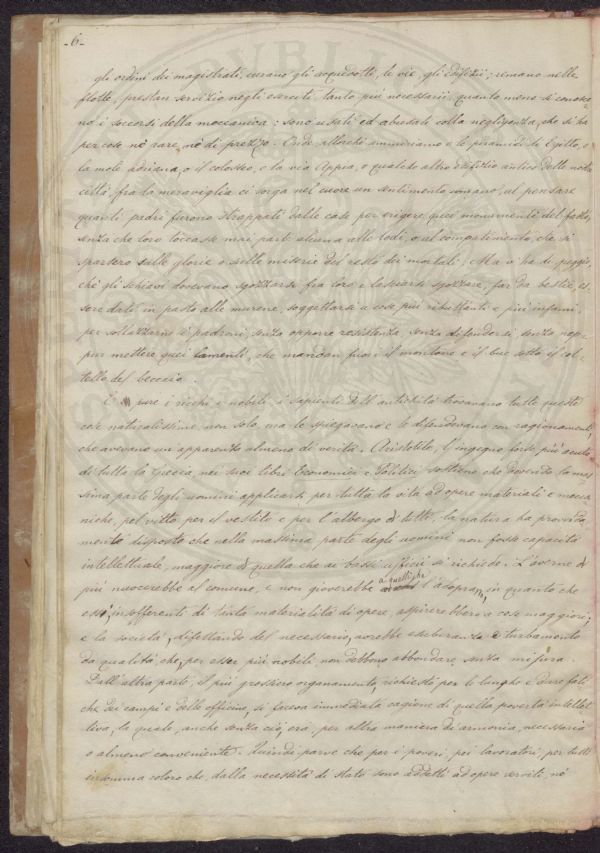 -6-
gli ordini dei magistrati, curano gli acquedotti, le vie, gli edifizii; remano nelle
flotte, prestan servizio negli eserciti, tanto più necessarii, quanto meno si conosco-
no i soccorsi della meccanica: sono usati ed abusati colla negligenza, che si ha
per cose nè rare, nè di prezzo. Onde allorchè ammiriamo o le piramidi d'Egitto, o
la mole adriana, o il colosseo, o la via Appia, o qualche altro edifizio antico delle nostre
città, fra la meraviglia ci sorga nel cuore un sentimento umano, al pensare
quanti padri furono strappati dalle case per erigere quei monumenti del fasto,
senza che loro toccasse mai parte alcuna alle lodi, o al compatimento, che si
sparsero sulle glorie o sulle miserie del resto dei mortali. Ma v'ha di peggio,
chè gli schiavi dovevano sgozzarsi fra loro, o lasciarsi sgozzare, far da bestie, es-
sere dati in pasto alle murene, soggettarsi a cose più ributtanti e più infami,
per sollazzarne i padroni, senza opporre resistenza, senza difendersi, senza nep-
pur mettere quei lamenti, che mandan fuori il montone e il bue sotto il col-
tello del beccaio.
E pure i ricchi, i nobili, i sapienti dell'antichità trovavano tutte queste
cose naturalissime, non solo, ma le spiegavano e le difendevano con ragionamenti,
che avevano un'apparenza almeno di verità. Aristotele, l'ingegno forse più acuto
di tutta la Grecia, nei suoi libri Economici e Politici sostiene che dovendo la mas-
sima parte degli uomini applicarsi per tutta la vita ad opere materiali e mecca-
niche, pel vitto, per il vestito e per l'albergo di tutti, la natura ha provvida-
mente disposto che nella massima parte degli uomini non fosse capacità
intellettuale, maggiore di quella che ai bassi ufficii si richiede. L'averne di
più nuocerebbe al comune, e non gioverebbe a quelli che l'adoprano, in quanto che
essi, insofferenti di tanta materialità di opere, aspirerebbero a cose maggiori;
e la società, difettando del necessario, avrebbe esuberanza e turbamento
da qualità, che, per esser più nobili, non debbono abbondare, senza misura.
Dall'altra parte, il più grossiero organamento, richiesto per le lunghe e dure fati-
che dei campi e delle officine, si faceva immediata cagione di quella povertà intellet-
tiva, la quale, anche senza ciò, era, per altra maniera di armonia, necessaria
o almeno conveniente. Quindi parve che per i poveri, pei lavoratori, per tutti
insomma coloro che, dalla necessità di stato sono addetti ad opere servili, nè